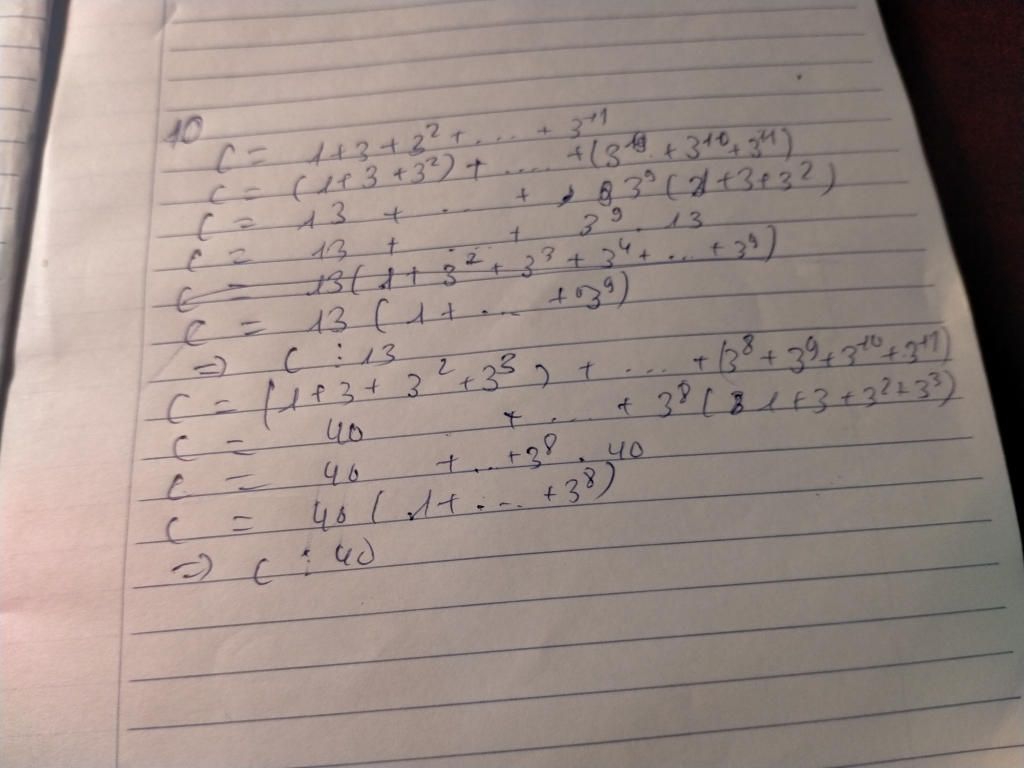 10
C = 1+3+3² +.... + 3¹¹
C = (1+3+3²) + ..... +(3⁹ + 3¹⁰+3¹¹)
C = 13 + ..... + 3⁹ (1+3+3²)
C = 13 + ... + 3⁹ . 13
C = 13(1+3²+3³+3⁴+...+3⁹)
C = 13 (1+ ... +3⁹)
=> C ⋮ 13
C = (1+3+ 3²+3³) + .... +(3⁸+3⁹+3¹⁰+3¹¹)
C = 40 + .... + 3⁸ (1+3+3²+3³)
C = 40 +...+3⁸ . 40
C = 40 (1+ .... +3⁸)
=> C ⋮ 40